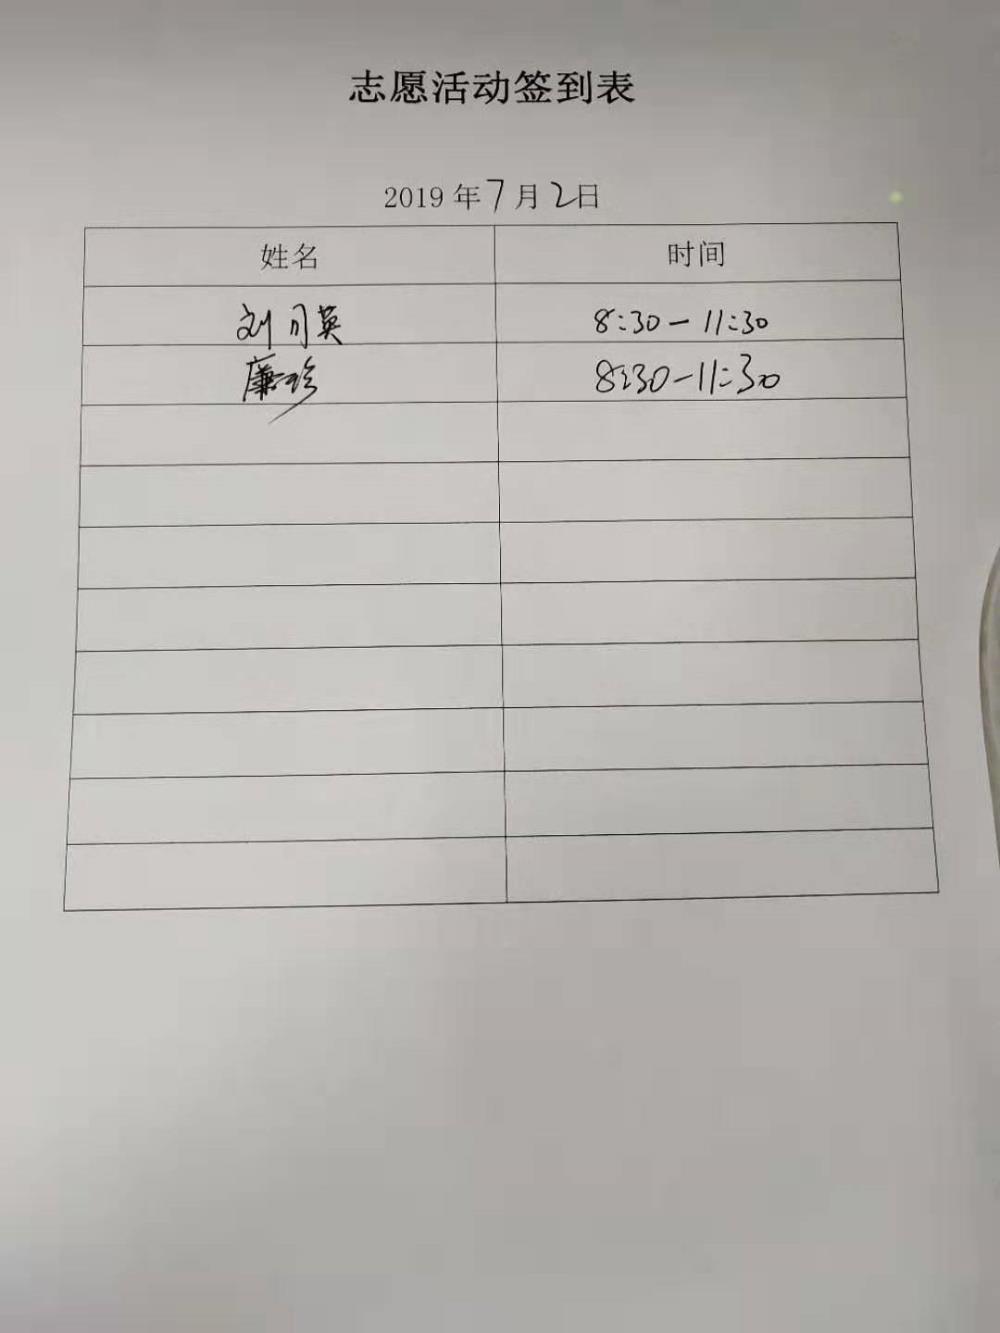 志愿活动签到表
2019年7月2日
姓名 时间
刘月英 8:30-11:30
廉珍 8:30-11:30